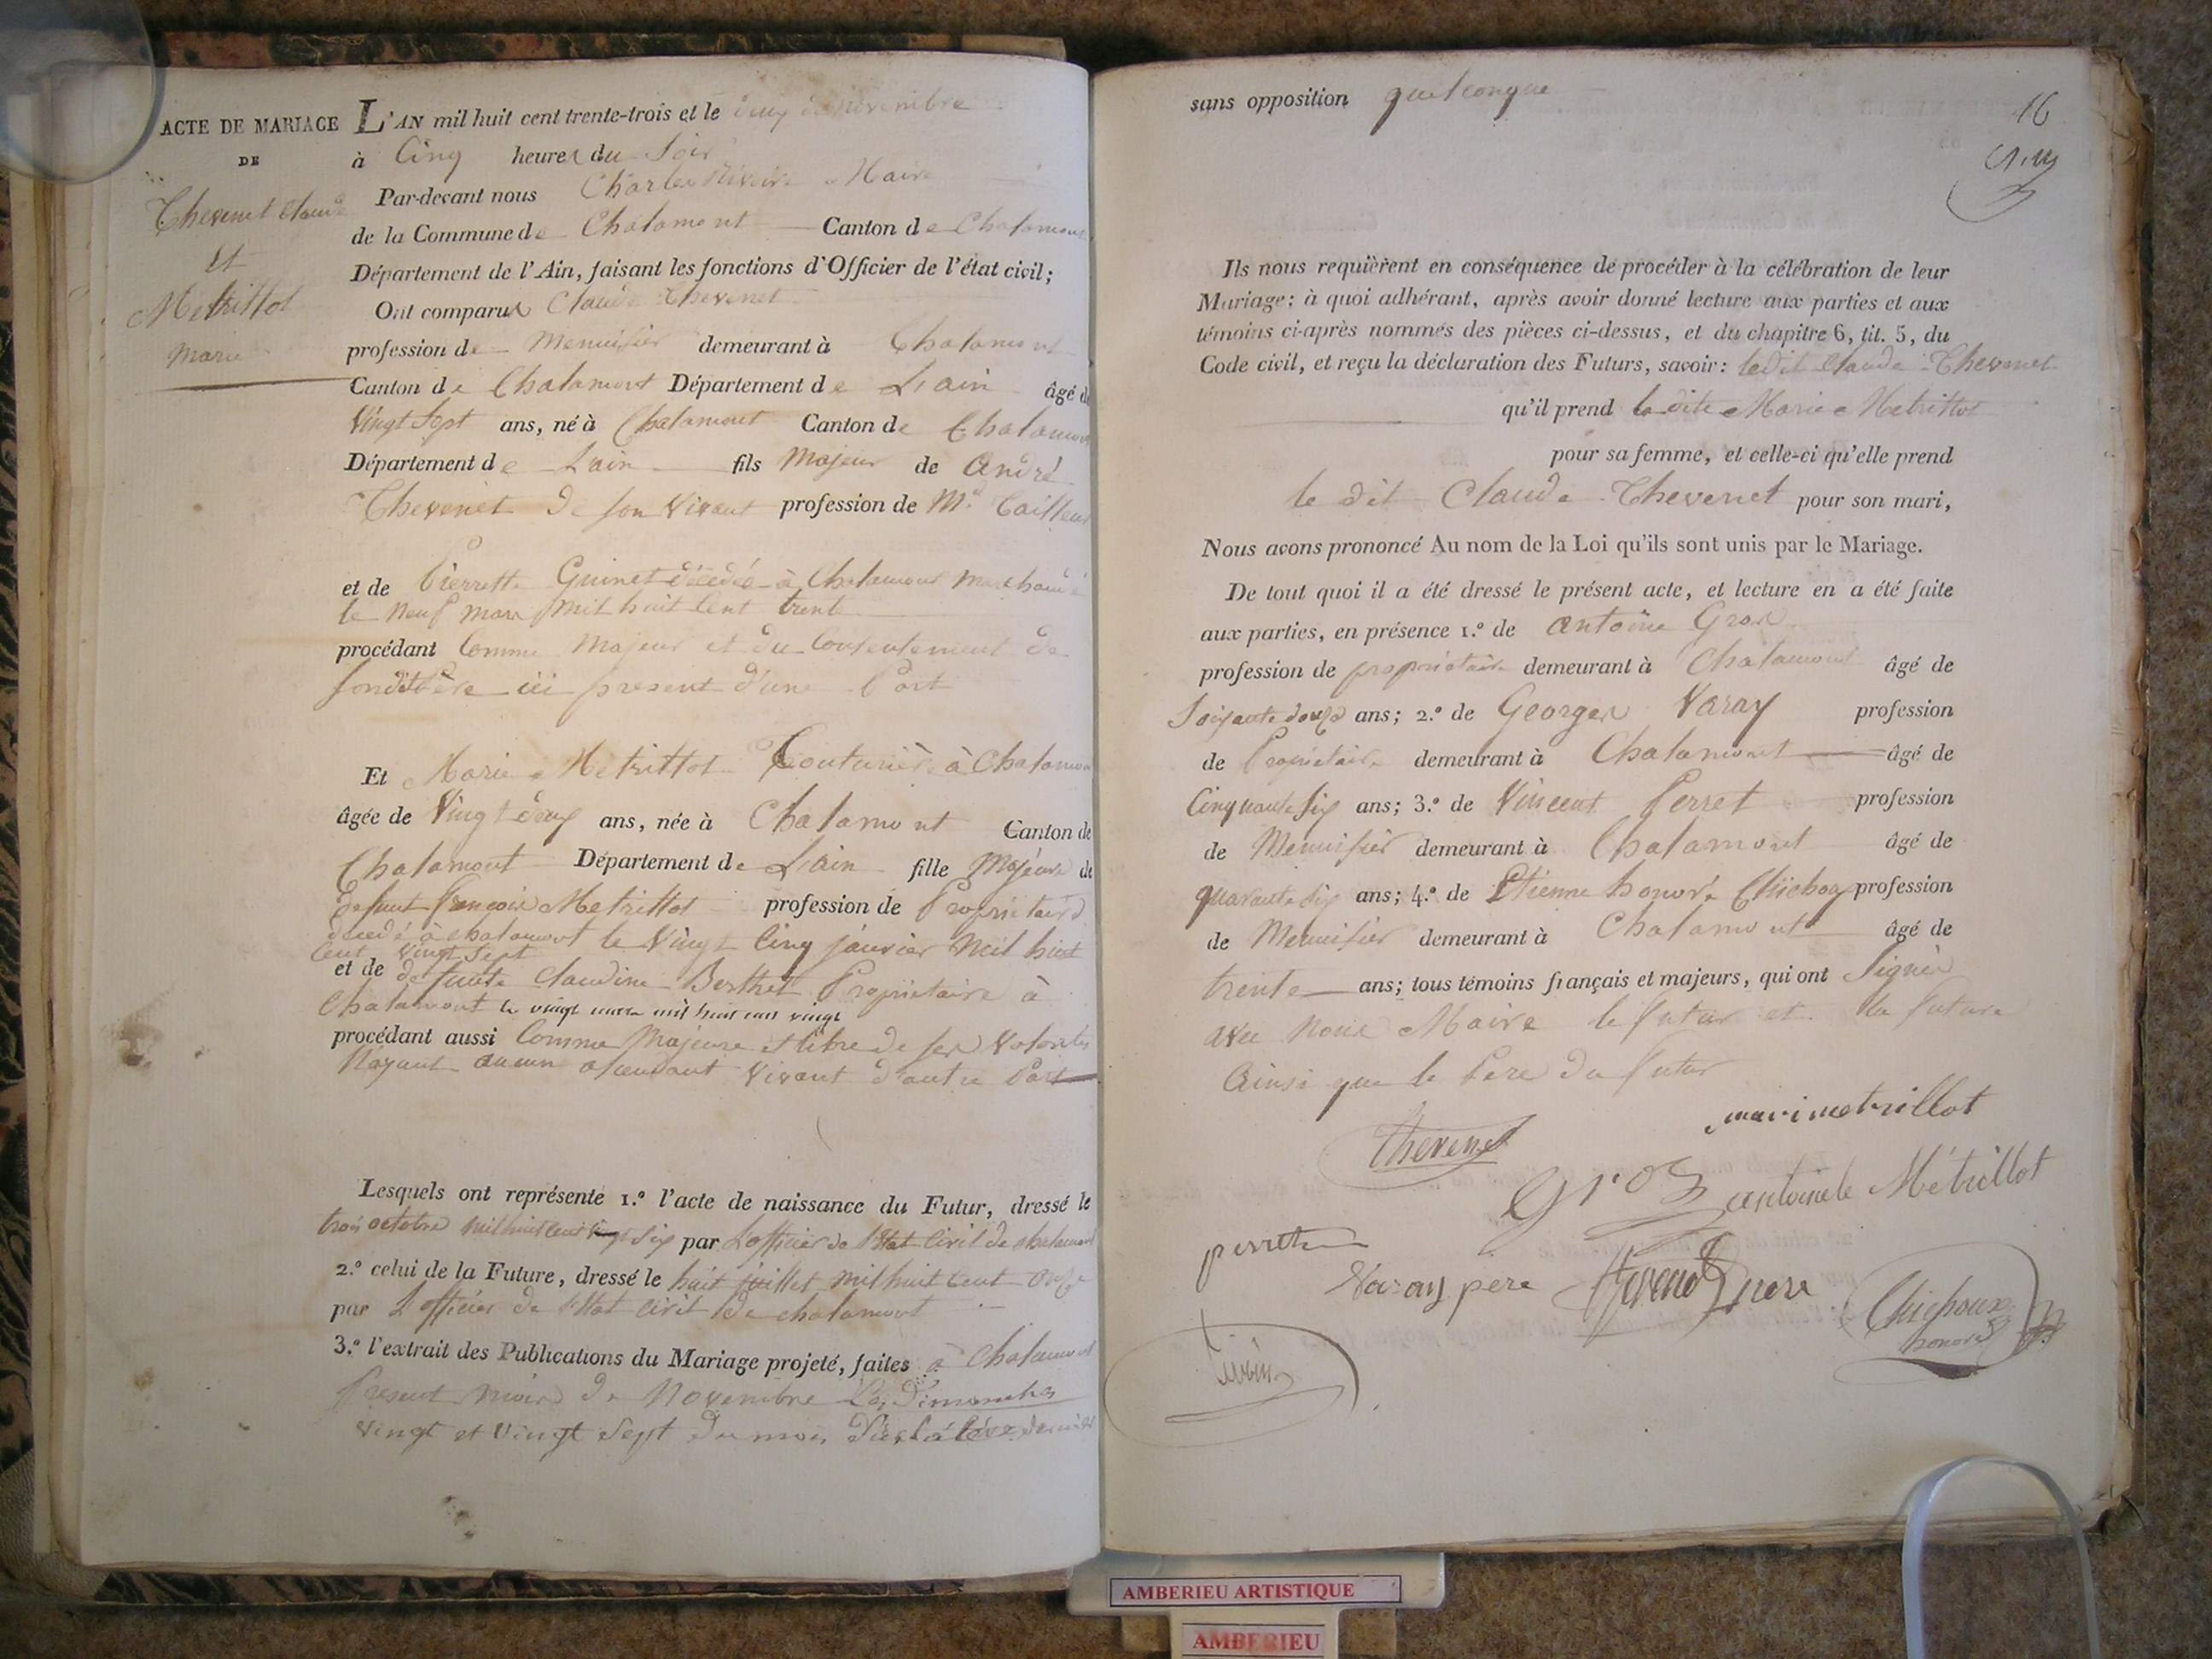 ACTE DE MARIAGE
DE
Thevenet Claude
et
Metrillot
Marie
L'AN mil huit cent trente-trois et le novembre
à Cinq heures du Soir
Par-devant nous Charles Maire
de la Commune de Chalamont Canton de Chalamont
Département de l'Ain, faisant les fonctions d'Officier de l'état civil;
Ont comparus Claude Thevenet
profession de Menuisier demeurant à Chalamont
Canton de Chalamont Département de L'ain âgé de
Vingt Sept ans, né à Chalamont Canton de Chalamont
Département de L'ain fils Majeur de André
Thevenet de son Vivant profession de Md Tailleur
et de Pierrette Guinet décédée à Chalamont Marchande
le neuf mars mil huit Cent trente
procédant Comme Majeur et du Consentement de
sondit Père ici present d'une Part
Et Marie Metrillot Couturière à Chalamont
âgée de Vingt deux ans, née à Chalamont Canton de
Chalamont Département de L'ain fille Majeure de
defunt François Metrillot profession de Propriétaire
décédé à chalamont le Vingt Cinq janvier Mil huit
Cent Vingt Sept
et de defunte Claudine Berthet Propriétaire à
Chalamont le vingt mars mil huit cent vingt
procédant aussi Comme Majeure et libre de ses Volontés
Nayant aucun assendant Vivant d'autre Part
Lesquels ont représenté 1.º l'acte de naissance du Futur, dressé le
trois octobre mil huit Cent Six par L'officier de l'Etat Civil de chalamont
2.º celui de la Future, dressé le huit juillet mil huit Cent onze
par L'officier de l'Etat Civil de chalamont
3.º l'extrait des Publications du Mariage projeté, faites à Chalamont
Present mois de Novembre Les Dimanches
Vingt et Vingt Sept du mois dernier
sans opposition quelconque
16
Ils nous requièrent en conséquence de procéder à la célébration de leur
Mariage; à quoi adhérant, après avoir donné lecture aux parties et aux
témoins ci-après nommés des pièces ci-dessus, et du chapitre 6, tit. 5, du
Code civil, et reçu la déclaration des Futurs, savoir: ledit Claude Thevenet
qu'il prend la dite Marie Metrillot
pour sa femme, et celle-ci qu'elle prend
le dit Claude Thevenet pour son mari,
Nous avons prononcé Au nom de la Loi qu'ils sont unis par le Mariage.
De tout quoi il a été dressé le présent acte, et lecture en a été faite
aux parties, en présence 1.º de antoine Gros
profession de propriétaire demeurant à Chalamont âgé de
Soixante douze ans; 2.º de Georges Varay profession
de Propriétaire demeurant à Chalamont âgé de
Cinquante Six ans; 3.º de Vincent Perret profession
de Menuisier demeurant à Chalamont âgé de
quarante Six ans; 4.º de Etienne honoré Chichoux profession
de Menuisier demeurant à Chalamont âgé de
trente ans; tous témoins français et majeurs, qui ont Signés
avec Nous Maire le futur et la future
Ainsi que le Père du futur
mari metrillot
thevenet
Gros
antoinete Métrillot
perret
Varay père
thevenet pere
Chichoux
honoré
AMBERIEU ARTISTIQUE
AMBERIEU